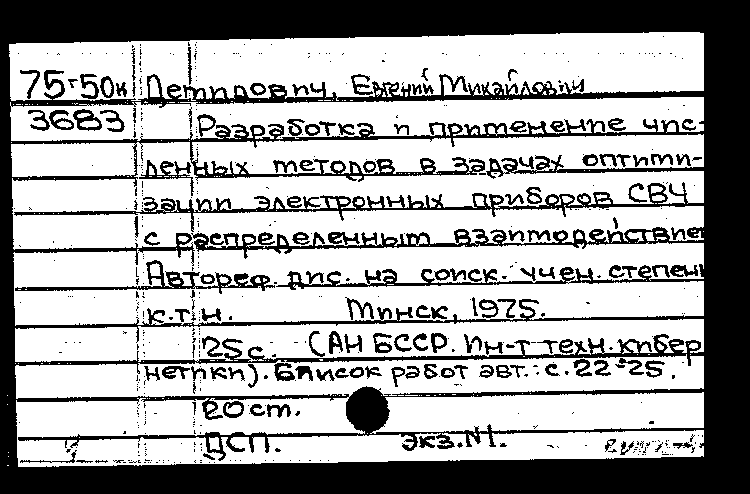 75-50к Демидович, Евгений Михайлович
3683 Разработка и применение чис-
ленных методов в задачах оптими-
зации электронных приборов СВЧ
с распределенным взаимодействием
Автореф. дис. на соиск. учен. степени
к.т.н. Минск, 1975.
25с. (АН БССР. Ин-т техн. кибер
нетики). Список работ авт.: с.22-25.
20 cm.
ДСП. экз.№1.